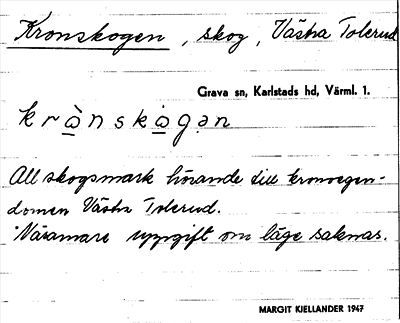 Kronskogen, skog, Västra Tolerud
Grava sn, Karlstads hd, Värml. 1.
krò̲nskò̲gən
All skogsmark hörande till kronoegen-
domen Västra Tolerud.
Närmare uppgift om läge saknas.
MARGIT KIELLANDER 1947